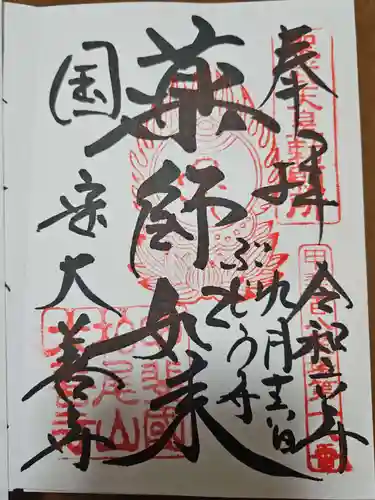 奉拝
令和六年
九月十六日
薬師如来
ぶどう寺
国宝
大善寺
甲斐國
柏尾山
大善寺